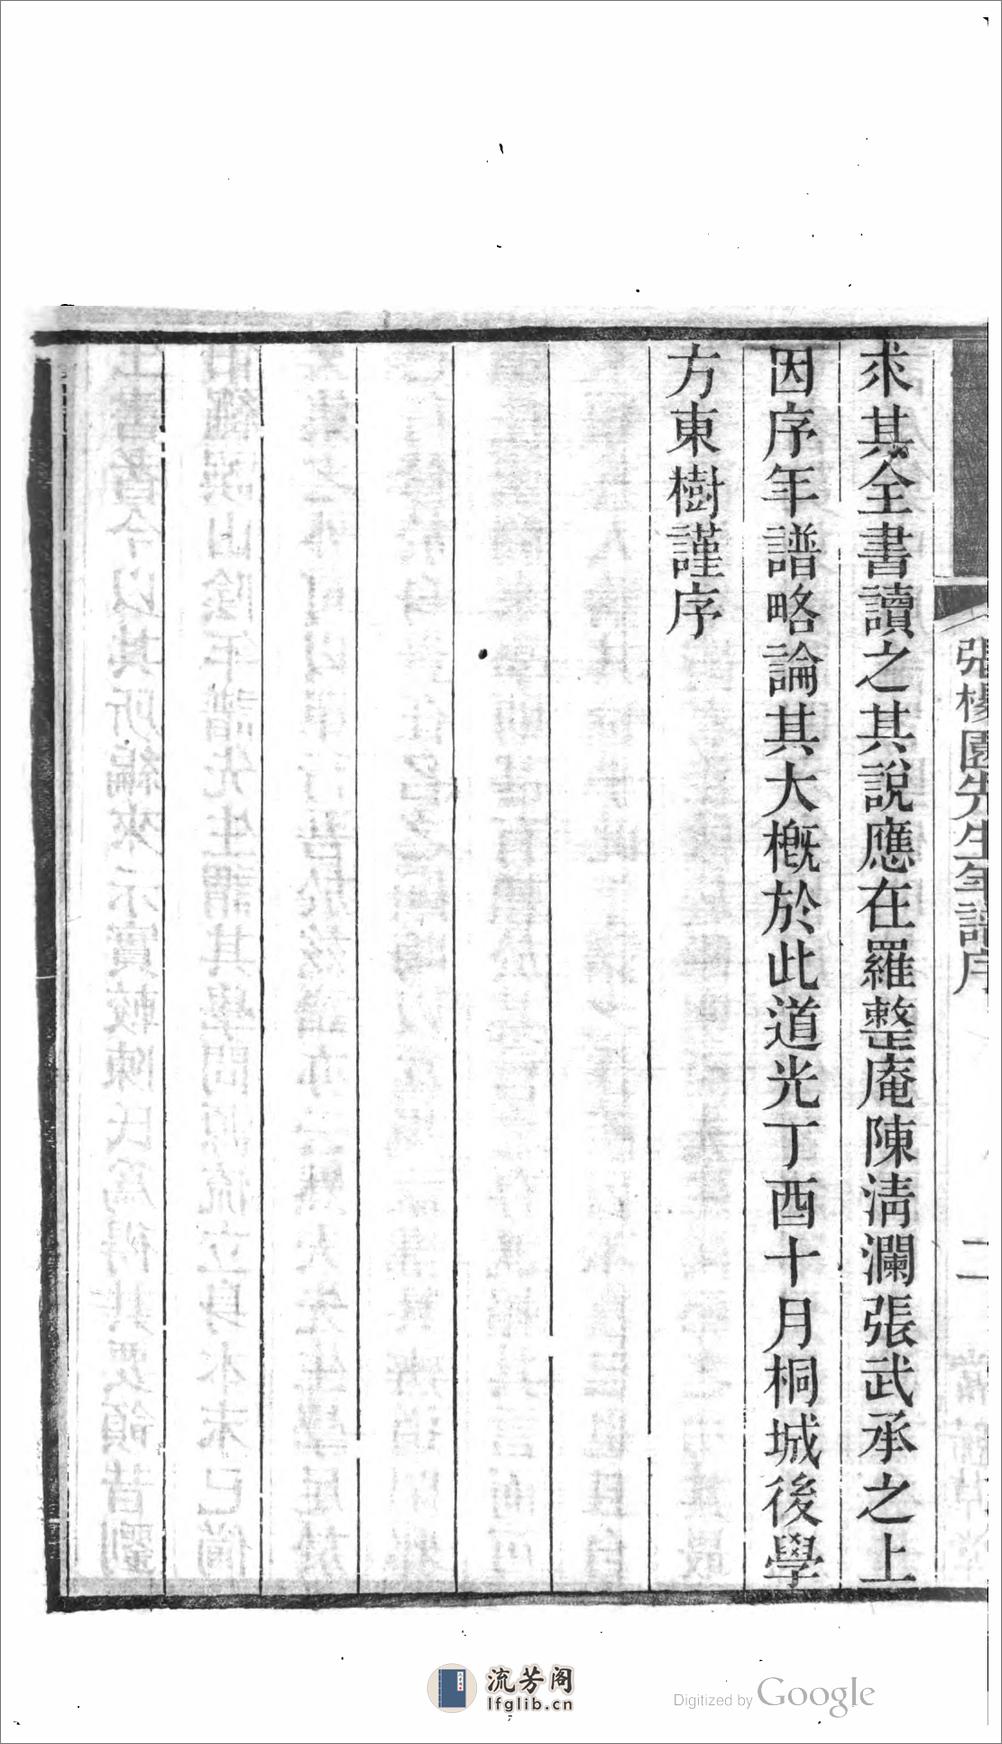 張楊園先生年譜序
二
求其全書讀之其說應在羅整庵陳清瀾張武承之上
因序年譜略論其大概於此道光丁酉十月桐城後學
方東樹謹序
流芳阁
lfglib.cn
Digitized by Google